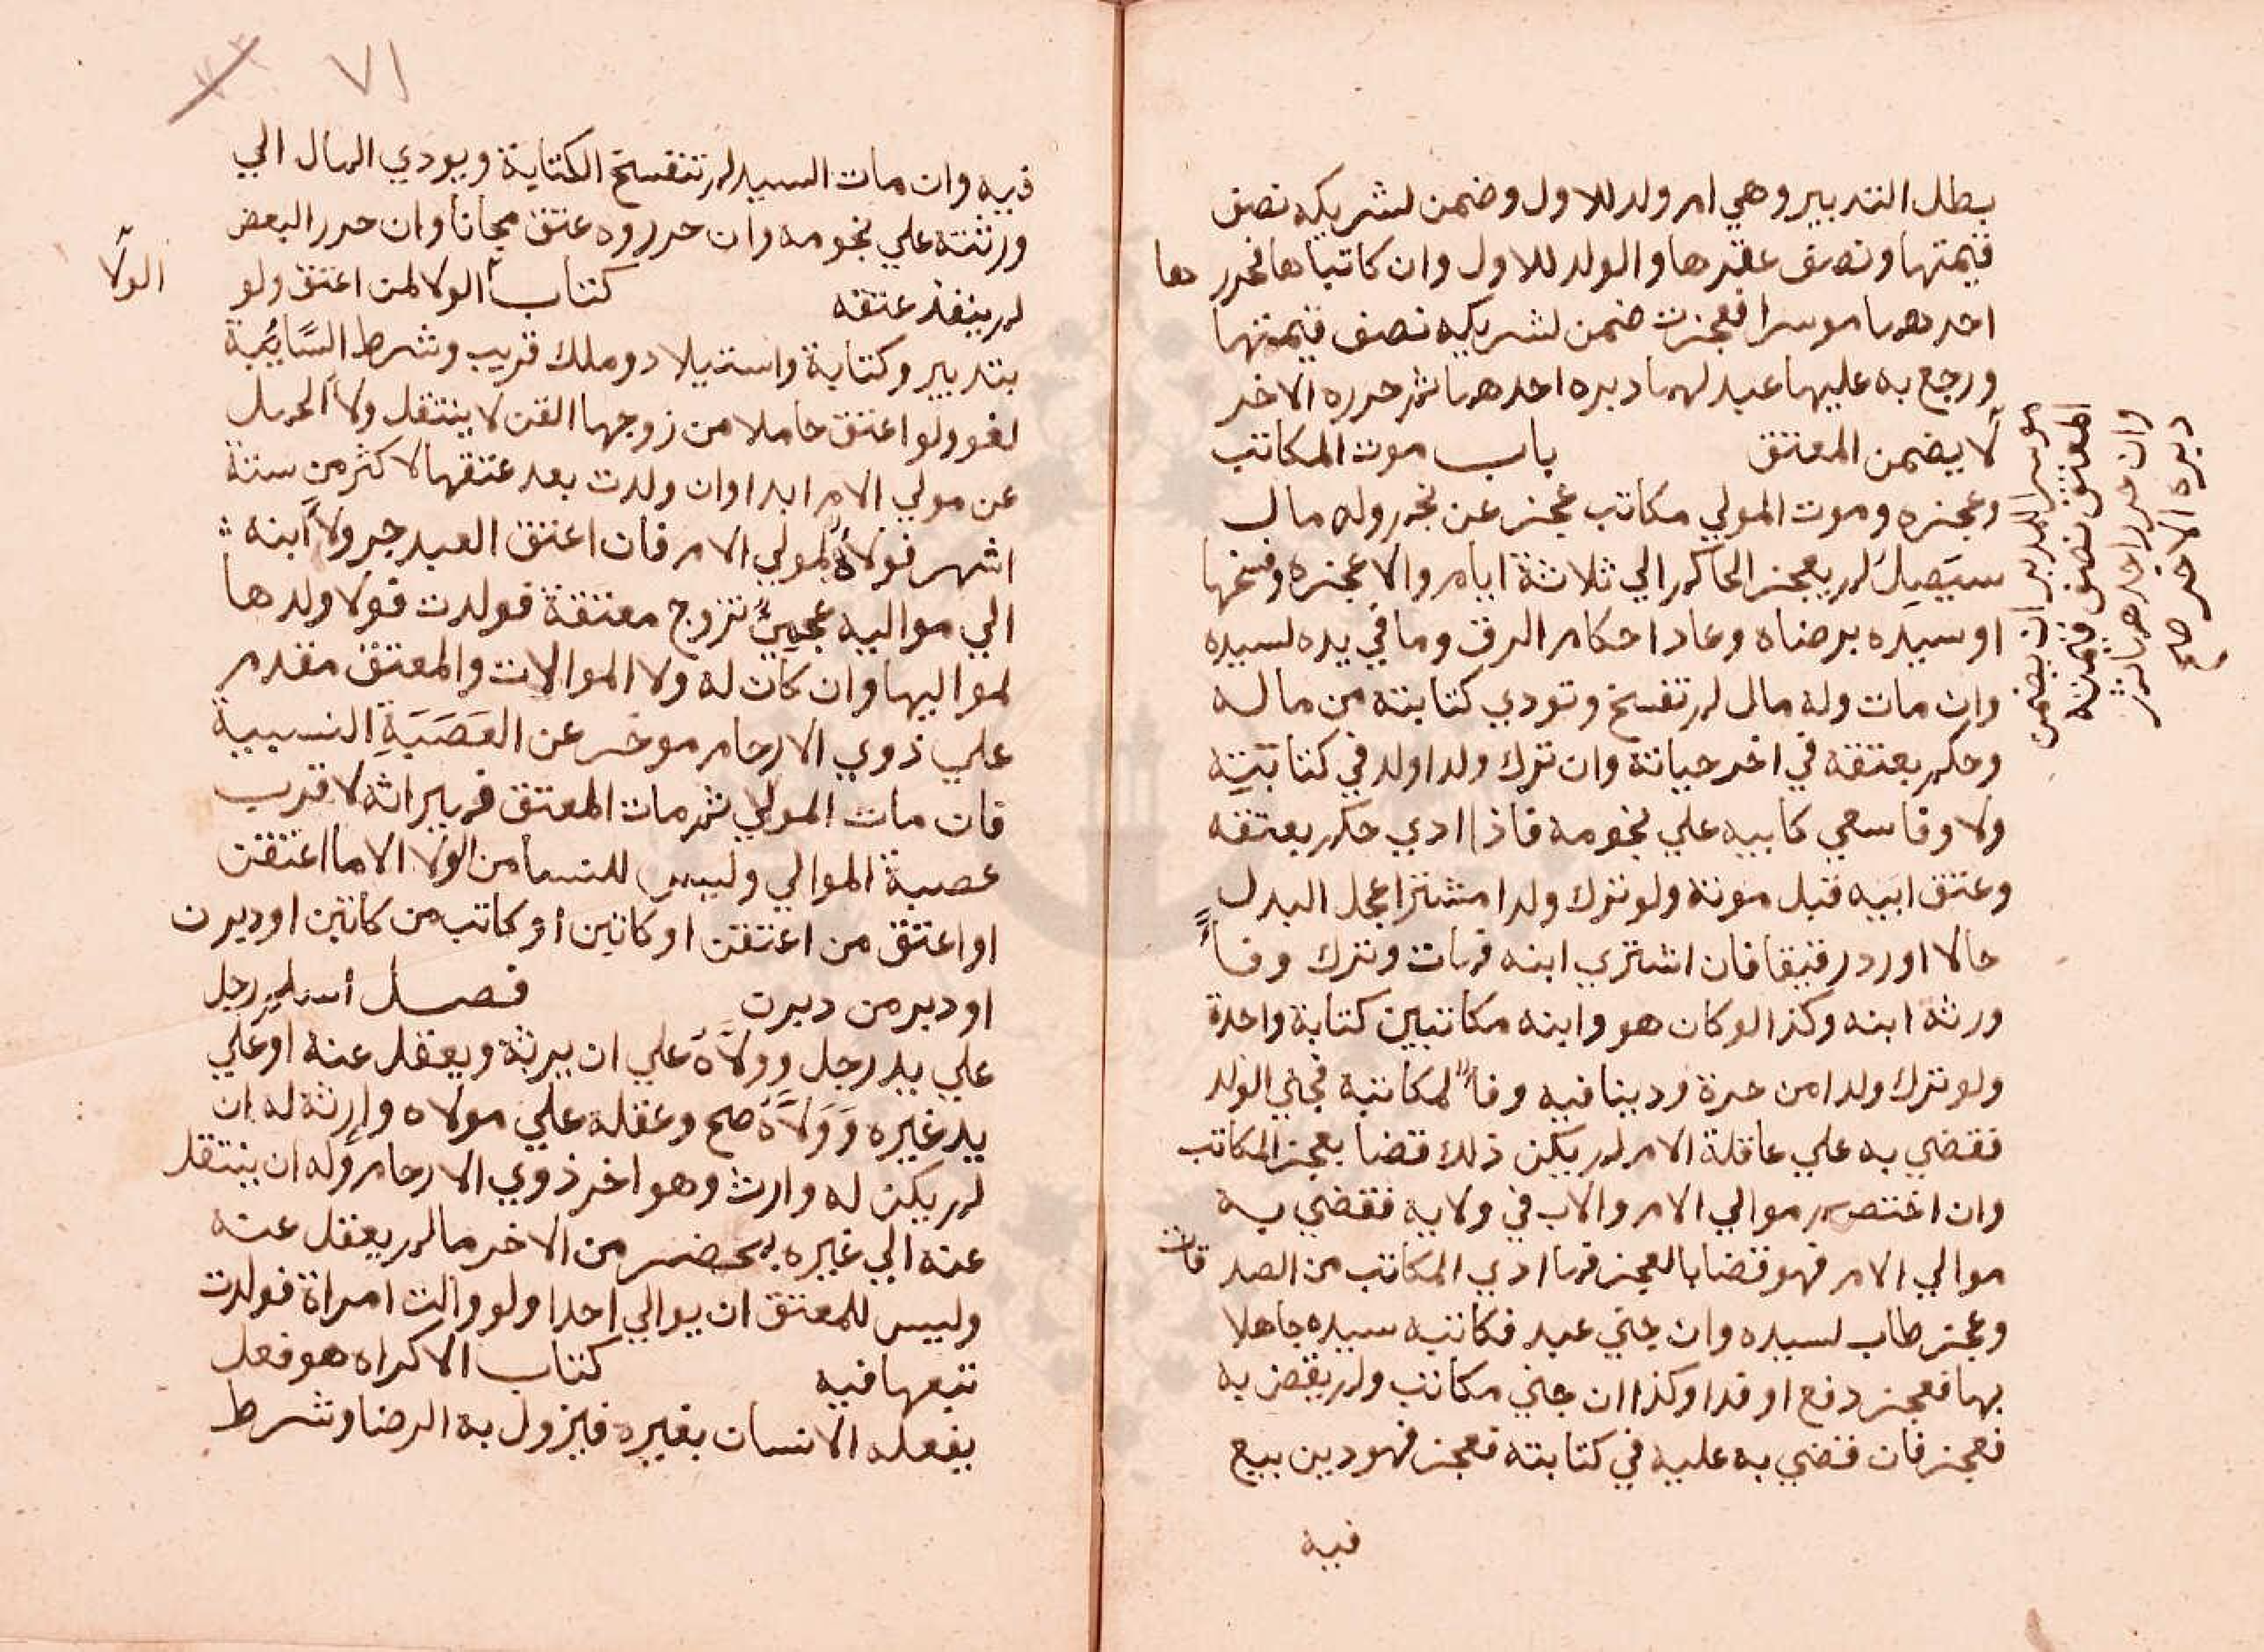 بطل التدبير وهي ام ولد للاول وضمن لشريكه نصف
قيمتها ونصف عقرها والولد للاول وان كاتباها فحررها
احدهما موسرا فعجزت ضمن لشريكه نصف قيمتها
ورجع به عليها عبد لهما دبره احدهما ثم حرره الاخر
لا يضمن المعتق باب موت المكاتب
وعجزه وموت المولي مكاتب عجز عن نجم وله مال
سيصل لم يعجز الحاكم الي ثلاثة ايام والا عجزه وفسخها
او سيده برضاه وعاد احكام الرق وما في يده لسيده
وان مات وله مال لم تفسخ وتودي كتابته من ماله
وحكم بعتقه في اخر حياته وان ترك ولدا ولد في كتابته
ولا وفا سعي كابيه علي نجومه فاذا ادي حكم بعتقه
وعتق ابيه قبل موته ولو ترك ولدا مشترا عجل البدل
حالا او رد رقيقا فان اشتري ابنه فمات وترك وفاً
ورثه ابنه وكذا لو كان هو وابنه مكاتبين كتابة واحدة
ولو ترك ولدا من حرة ودينا فيه وفاً لمكاتبه فجني الولد
فقضي به علي عاقلة الام لم يكن ذلك قضا بعجز المكاتب
وان اختصم موالي الام والاب في ولايه فقضي به
موالي الام فهو قضا بالعجز فما ادي المكاتب من الصدقات
وعجز طاب لسيده وان جني عبد فكاتبه سيده جاهلا
بها فعجز دفع او فدا وكذا ان جني مكاتب ولم يقض به
فعجز فان قضي به عليه في كتابته فعجز فهو دين بيع
فيه
موسرا المدبر ان يضمن
المعتق نصف قيمته
وان حرر احدهما ثم
دبره الاخر صح
٧١
فيه وان مات السيد لم تنفسخ الكتابة ويودي المال الي
ورثته علي نجومه وان حرروه عتق مجانا وان حرر البعض
لم ينفذ عتقه كتاب الولا لمن اعتق ولو
الولا
بتدبير وكتابة واستيلاد وملك قريب وشرط السَّايُبة
لغو ولو اعتق حاملا من زوجها القن لا ينتقل ولا الحمل
عن موالي الام ابدا وان ولدت بعد عتقها لاكثر من ستة
اشهر فولاه لموالي الام فان اعتق العبد جر ولا ابنه
الي مواليه عجميٌ تزوج معتقة فولدت فولا ولدها
لمواليها وان كان له ولا الموالات والمعتق مقدم
علي ذوي الارحام موخر عن العَصَبَةِ النسبية
فان مات المولي ثم مات المعتق فميراثه لاقرب
عصبة الموالي وليس للنسا من الولا الا ما اعتقن
او اعتق من اعتقن او كاتبن او كاتب من كاتبن او دبرن
او دبر من دبرن فصل أسلم رجل
علي يد رجل وولاَّهُ علي ان يرثه ويعقل عنه او علي
يد غيره وَوَلاَّهُ صح وعقله علي مولاه وارثه له ان
لم يكن له وارث وهو اخر ذوي الارحام وله ان ينتقل
عنه الي غيره بمحضر من الاخر ما لم يعقل عنه
وليس للمعتق ان يوالي احدا ولو والت امراة فولدت
تبعها فيه كتاب الاكراه هو فعل
يفعله الانسان بغيره فيزول به الرضا وشرط